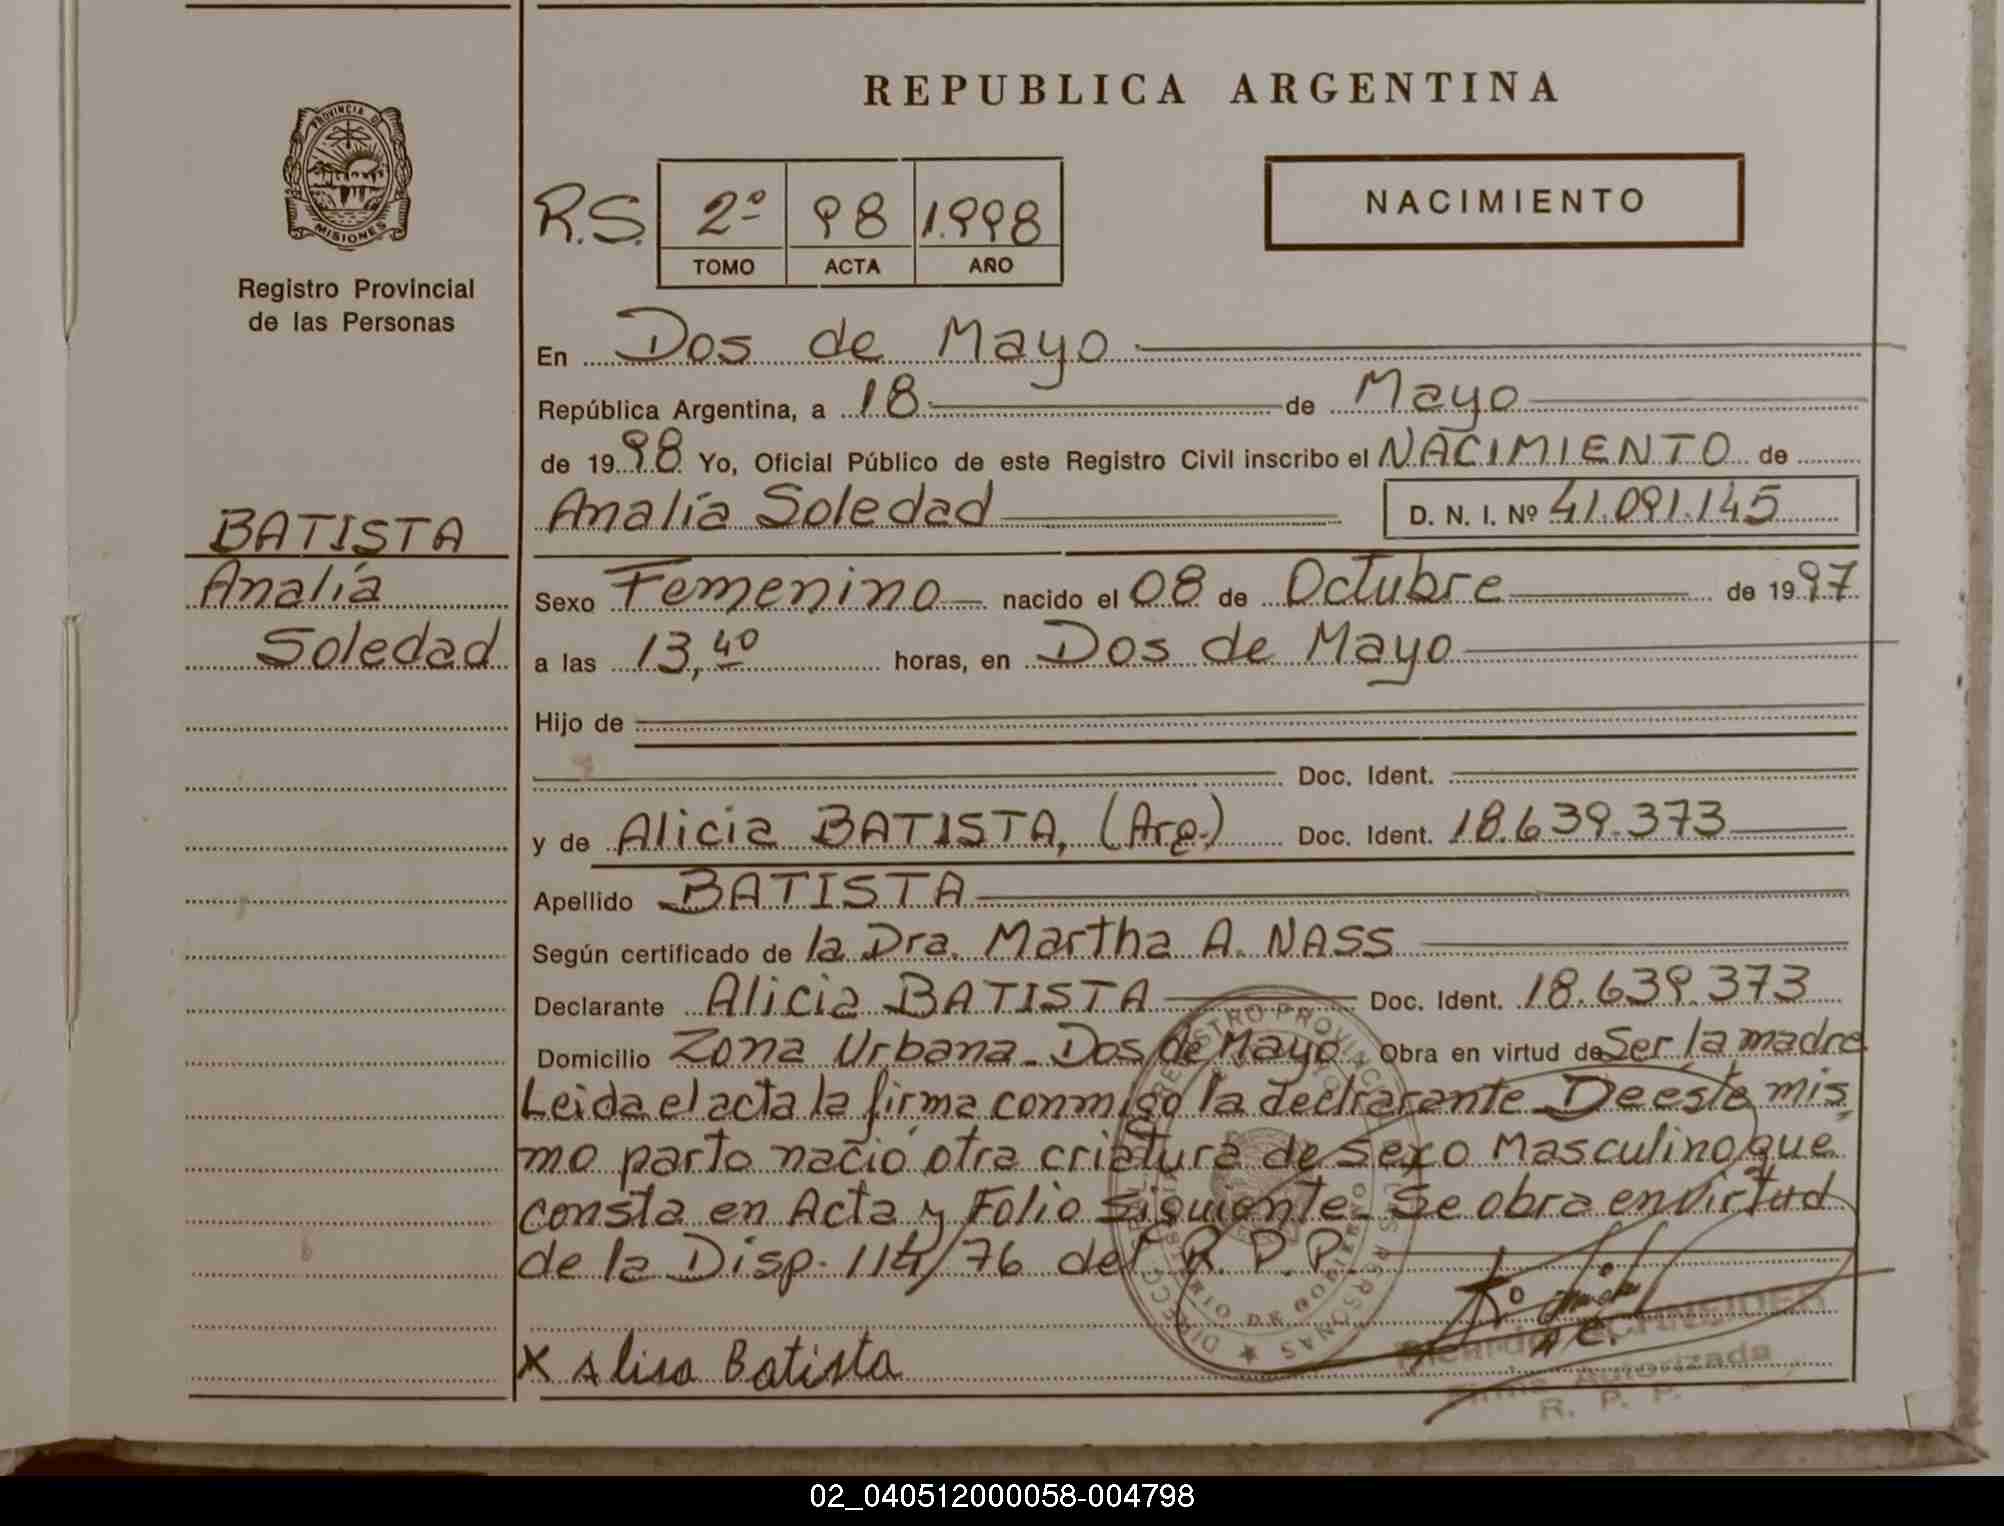 REPUBLICA ARGENTINA
PROVINCIA DE
MISIONES
Registro Provincial
de las Personas
NACIMIENTO
R.S. 2º 98 1.998
TOMO ACTA AÑO
En Dos de Mayo
República Argentina, a 18 de Mayo
de 1998 Yo, Oficial Público de este Registro Civil inscribo el NACIMIENTO de
Analía Soledad D. N. I. Nº 41.091.145
BATISTA
Analía
Soledad
Sexo Femenino nacido el 08 de Octubre de 1997
a las 13,40 horas, en Dos de Mayo
Hijo de
Doc. Ident.
y de Alicia BATISTA, (Arg.) Doc. Ident. 18.639.373
Apellido BATISTA
Según certificado de la Dra. Martha A. NASS
Declarante Alicia BATISTA Doc. Ident. 18.639.373
Domicilio Zona Urbana - Dos de Mayo Obra en virtud de Ser la madre
Leida el acta la firma conmigo la declrarante De este mis
mo parto nació otra criatura de Sexo Masculino, que
consta en Acta y Folio Siguiente - Se obra en virtud
de la Disp. 114/76 del R. P. P.
X Alisa Batista
Firma Autorizada
R. P. P.
02_040512000058-004798